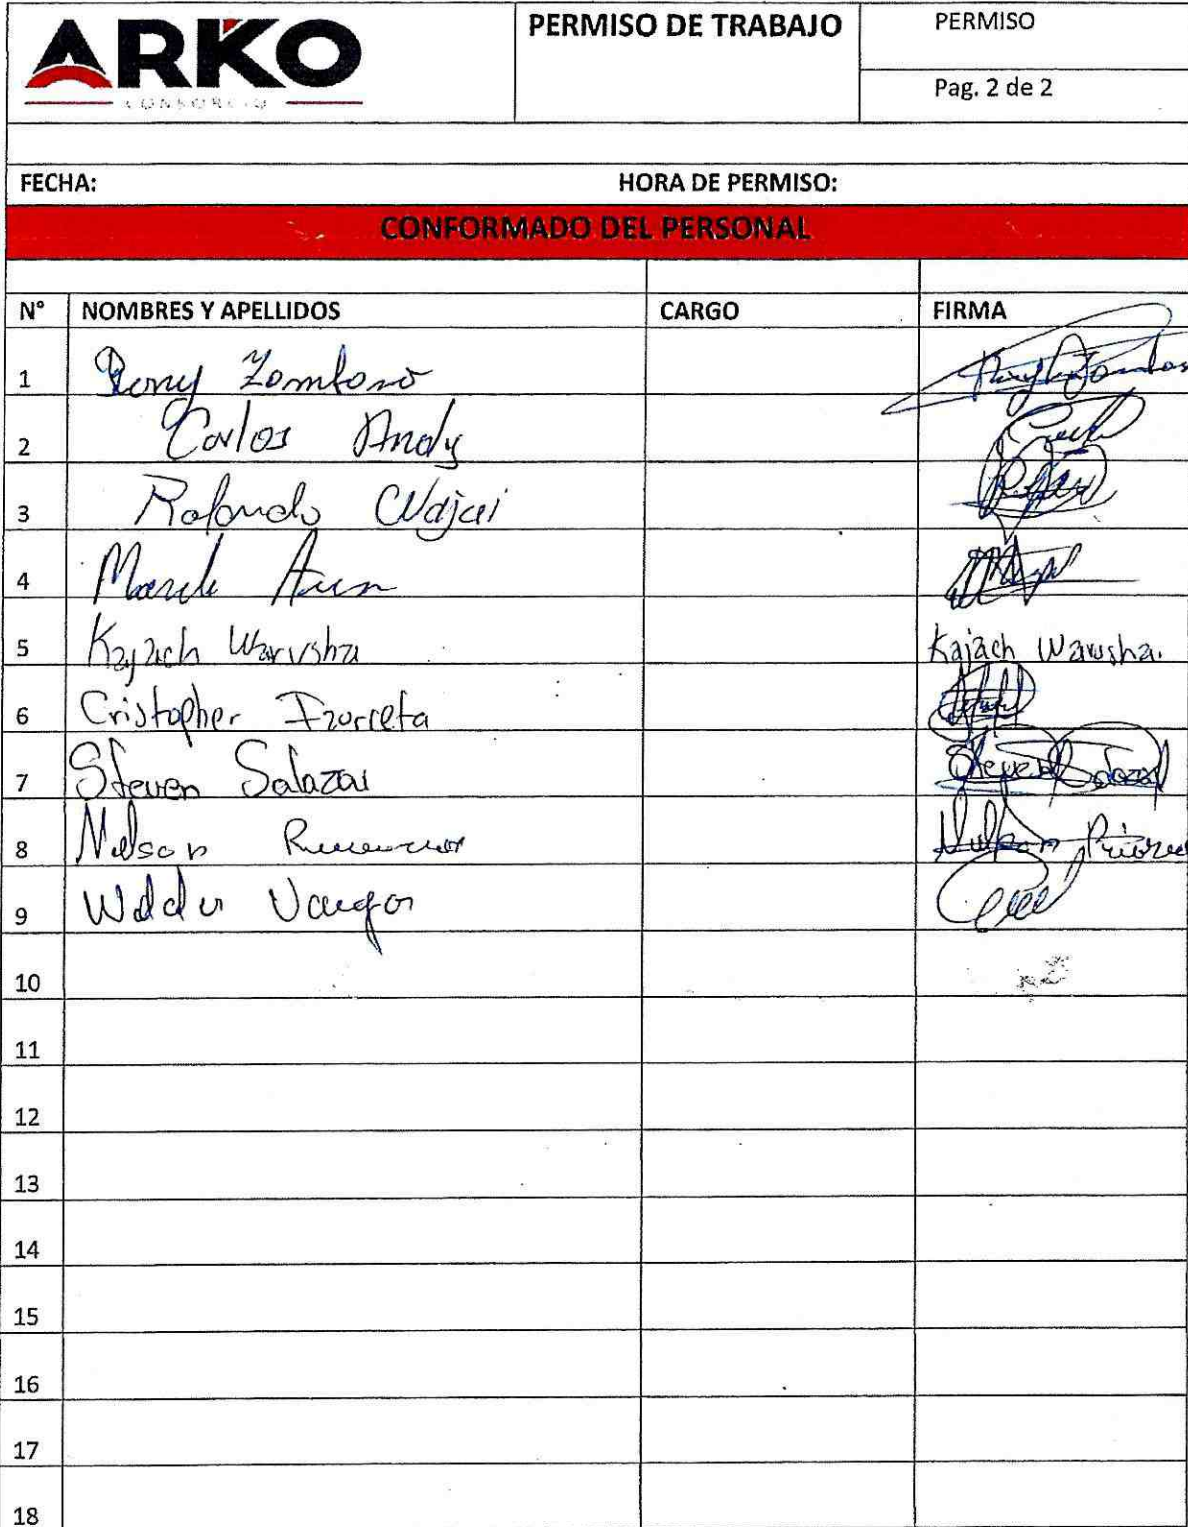 ARKO
CONSORCIO
PERMISO DE TRABAJO
PERMISO
Pag. 2 de 2
FECHA: HORA DE PERMISO:
CONFORMADO DEL PERSONAL
N° NOMBRES Y APELLIDOS CARGO FIRMA
1 Rony Zambrano
2 Carlos Andy
3 Rolando
4
5 Kajach Warusha Kajach Warusha.
6 Cristopher Izurieta
7 Steven Salazar Steven Salazar
8 Nelson
9 Vargas
10
11
12
13
14
15
16
17
18